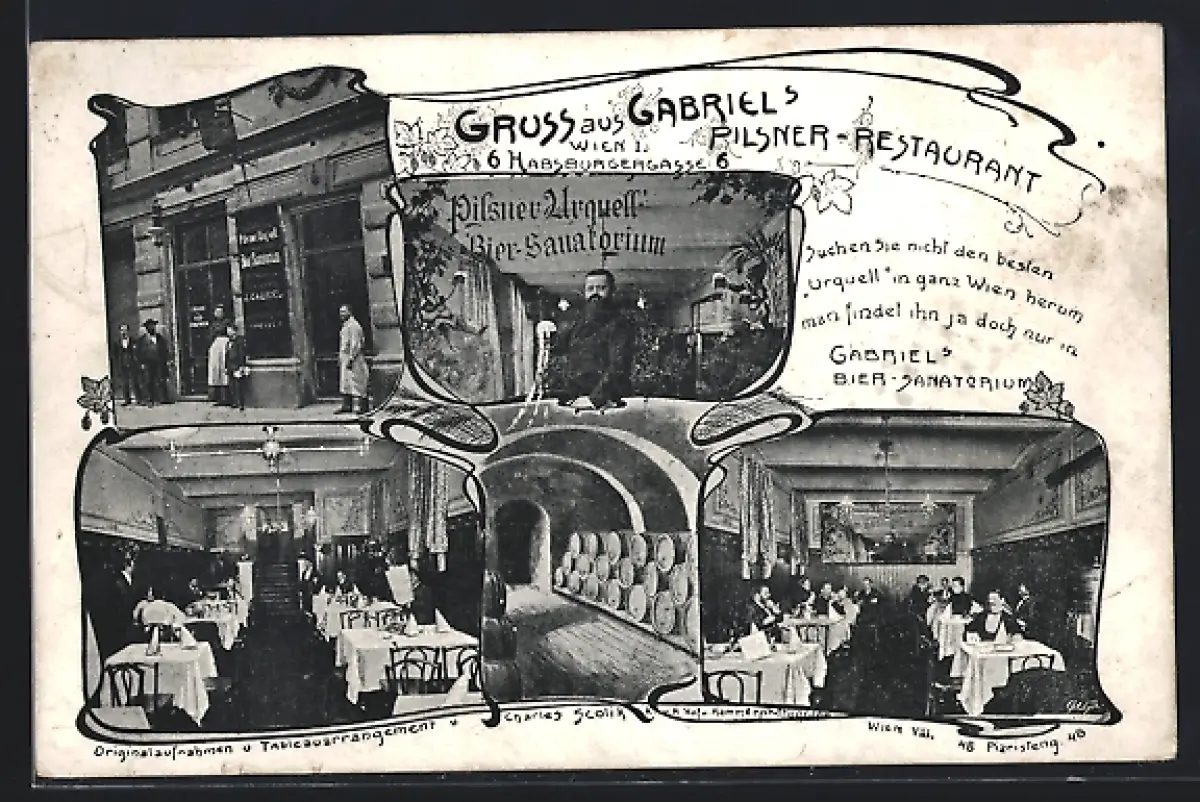 GRUSS aus GABRIELS
PILSNER-RESTAURANT
WIEN I.
6 HABSBURGERGASSE 6
Pilsner Urquell
Bier-Sanatorium
Suchen Sie nicht den besten
„Urquell“ in ganz Wien herum
man findet ihn ja doch nur in
GABRIELS
BIER-SANATORIUM
Originalaufnahmen u Tableauarrangement v Charles Scolik
Wien VIII. 48 Piaristeng. 48